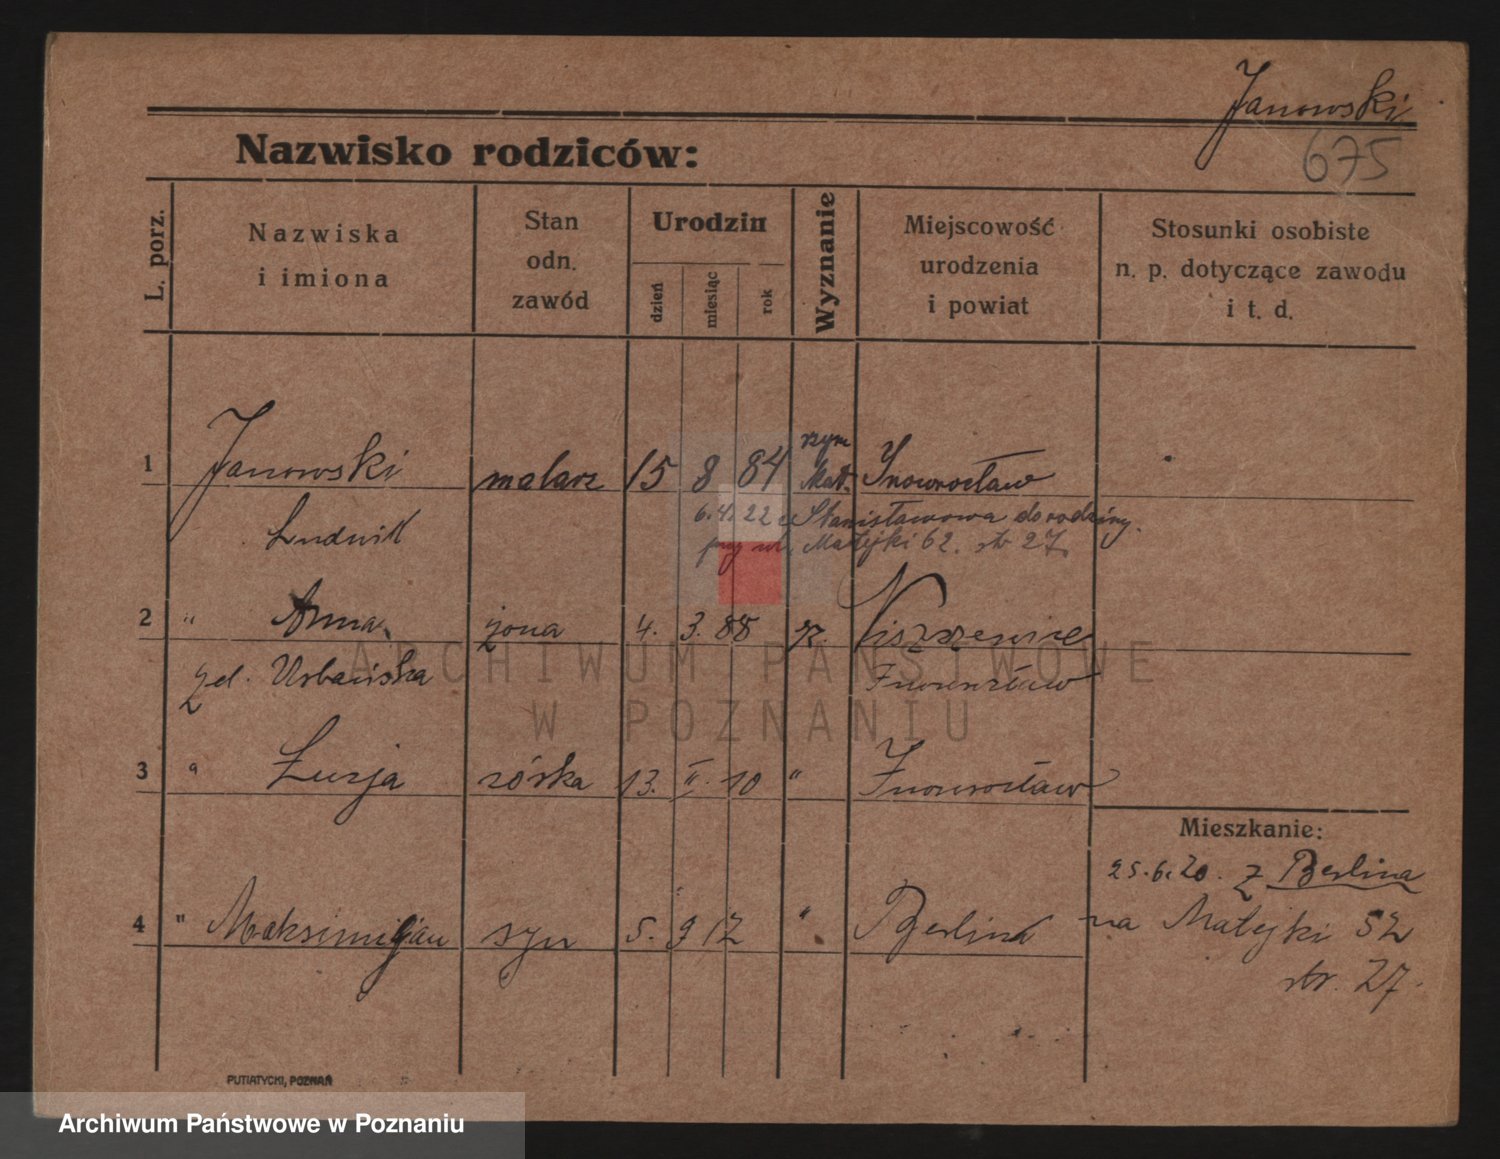 Janowski
675
Nazwisko rodziców:
L. porz.
Nazwiska
i imiona
Stan
odn.
zawód
Urodzin
dzień
miesiąc
rok
Wyznanie
Miejscowość
urodzenia
i powiat
Stosunki osobiste
n. p. dotyczące zawodu
i t. d.
1 Janowski malarz 15 8 84 rzym kat. Inowrocław
Ludwik
6.4.22 z Stanisławowa do rodziny
przy ul. Matejki 62. str 27
2 " Anna żona 4. 3. 88 rz.
zd. Urbańska Inowrocław
3 " Łucja córka 13. II. 10 " Inowrocław
Mieszkanie:
25.6.20. z Berlina
4 " Maksimiljan syn 5. 9 12 " Berlin
na Matejki 52
str. 27.
PUTIATYCKI, POZNAŃ
ARCHIWUM PAŃSTWOWE
W POZNANIU
Archiwum Państwowe w Poznaniu